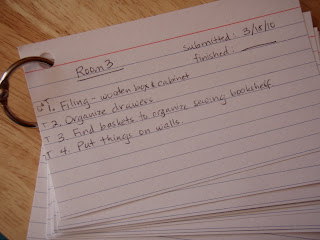 Room 3
Submitted: 3/18/10
finished:
1. Filing - wooden box & cabinet
T 2. Organize drawers
T 3. Find baskets to organize sewing bookshelf.
T 4. Put things on walls.